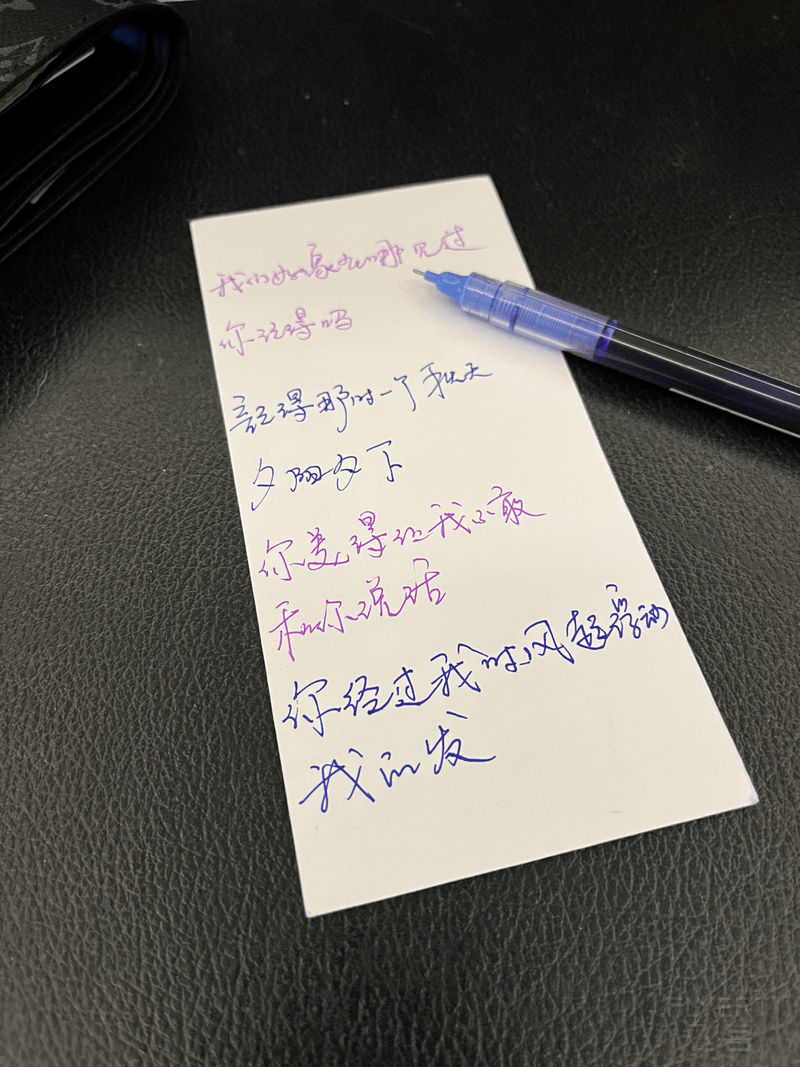 我们好像在哪见过
你记得吗
记得那时一个秋天
夕阳夕下
你美得让我不敢
和你说话
你经过我时风起浮动
我的发
FLYER